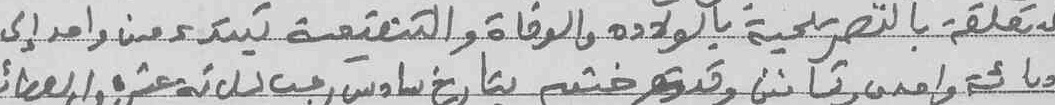 لمتعلقة بالتصريحية بالولاده والوفاة و التنقيحية تبتدء من واحد إلى
ومائة واحدى وثمانين وقد تم ختمه بتاريخ سادس رجب ثلاثة عشر